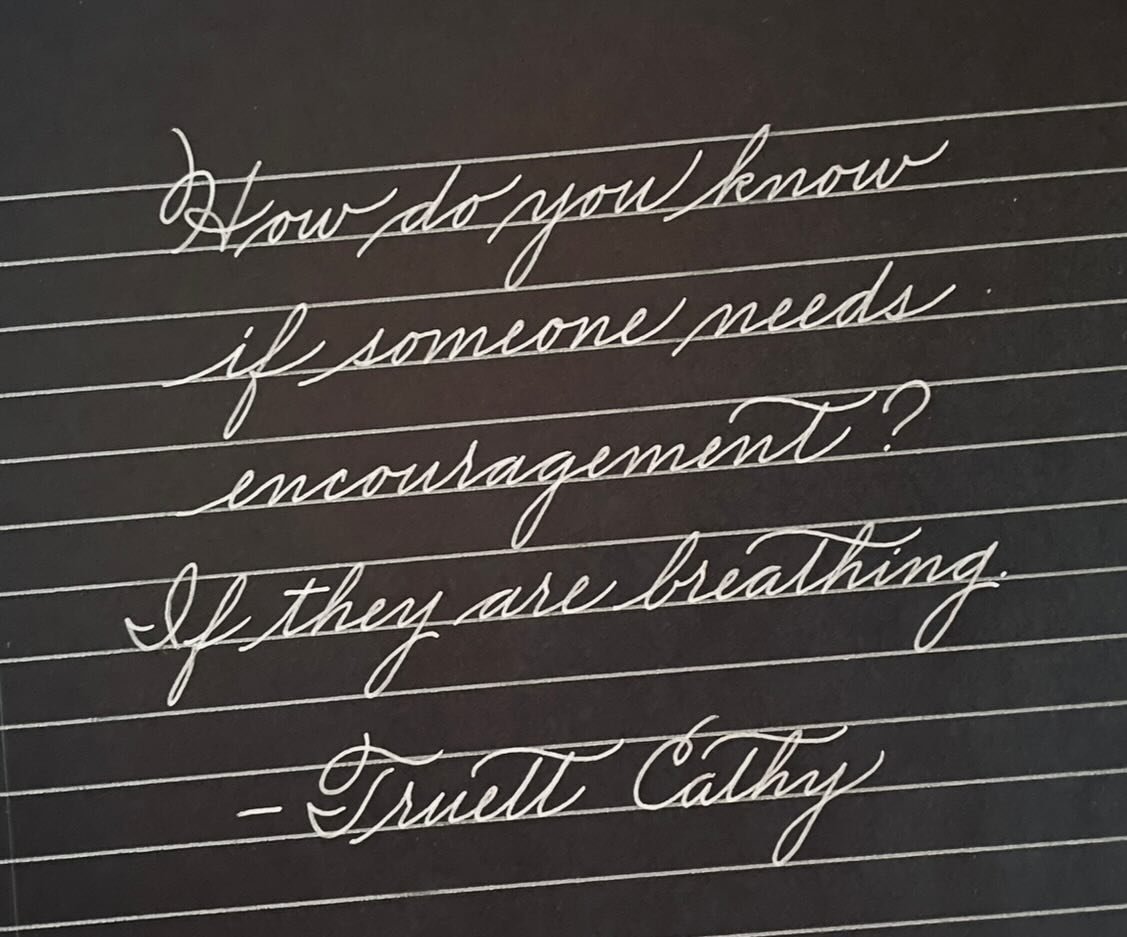 How do you know
if someone needs
encouragement?
If they are breathing.
- Truett Cathy